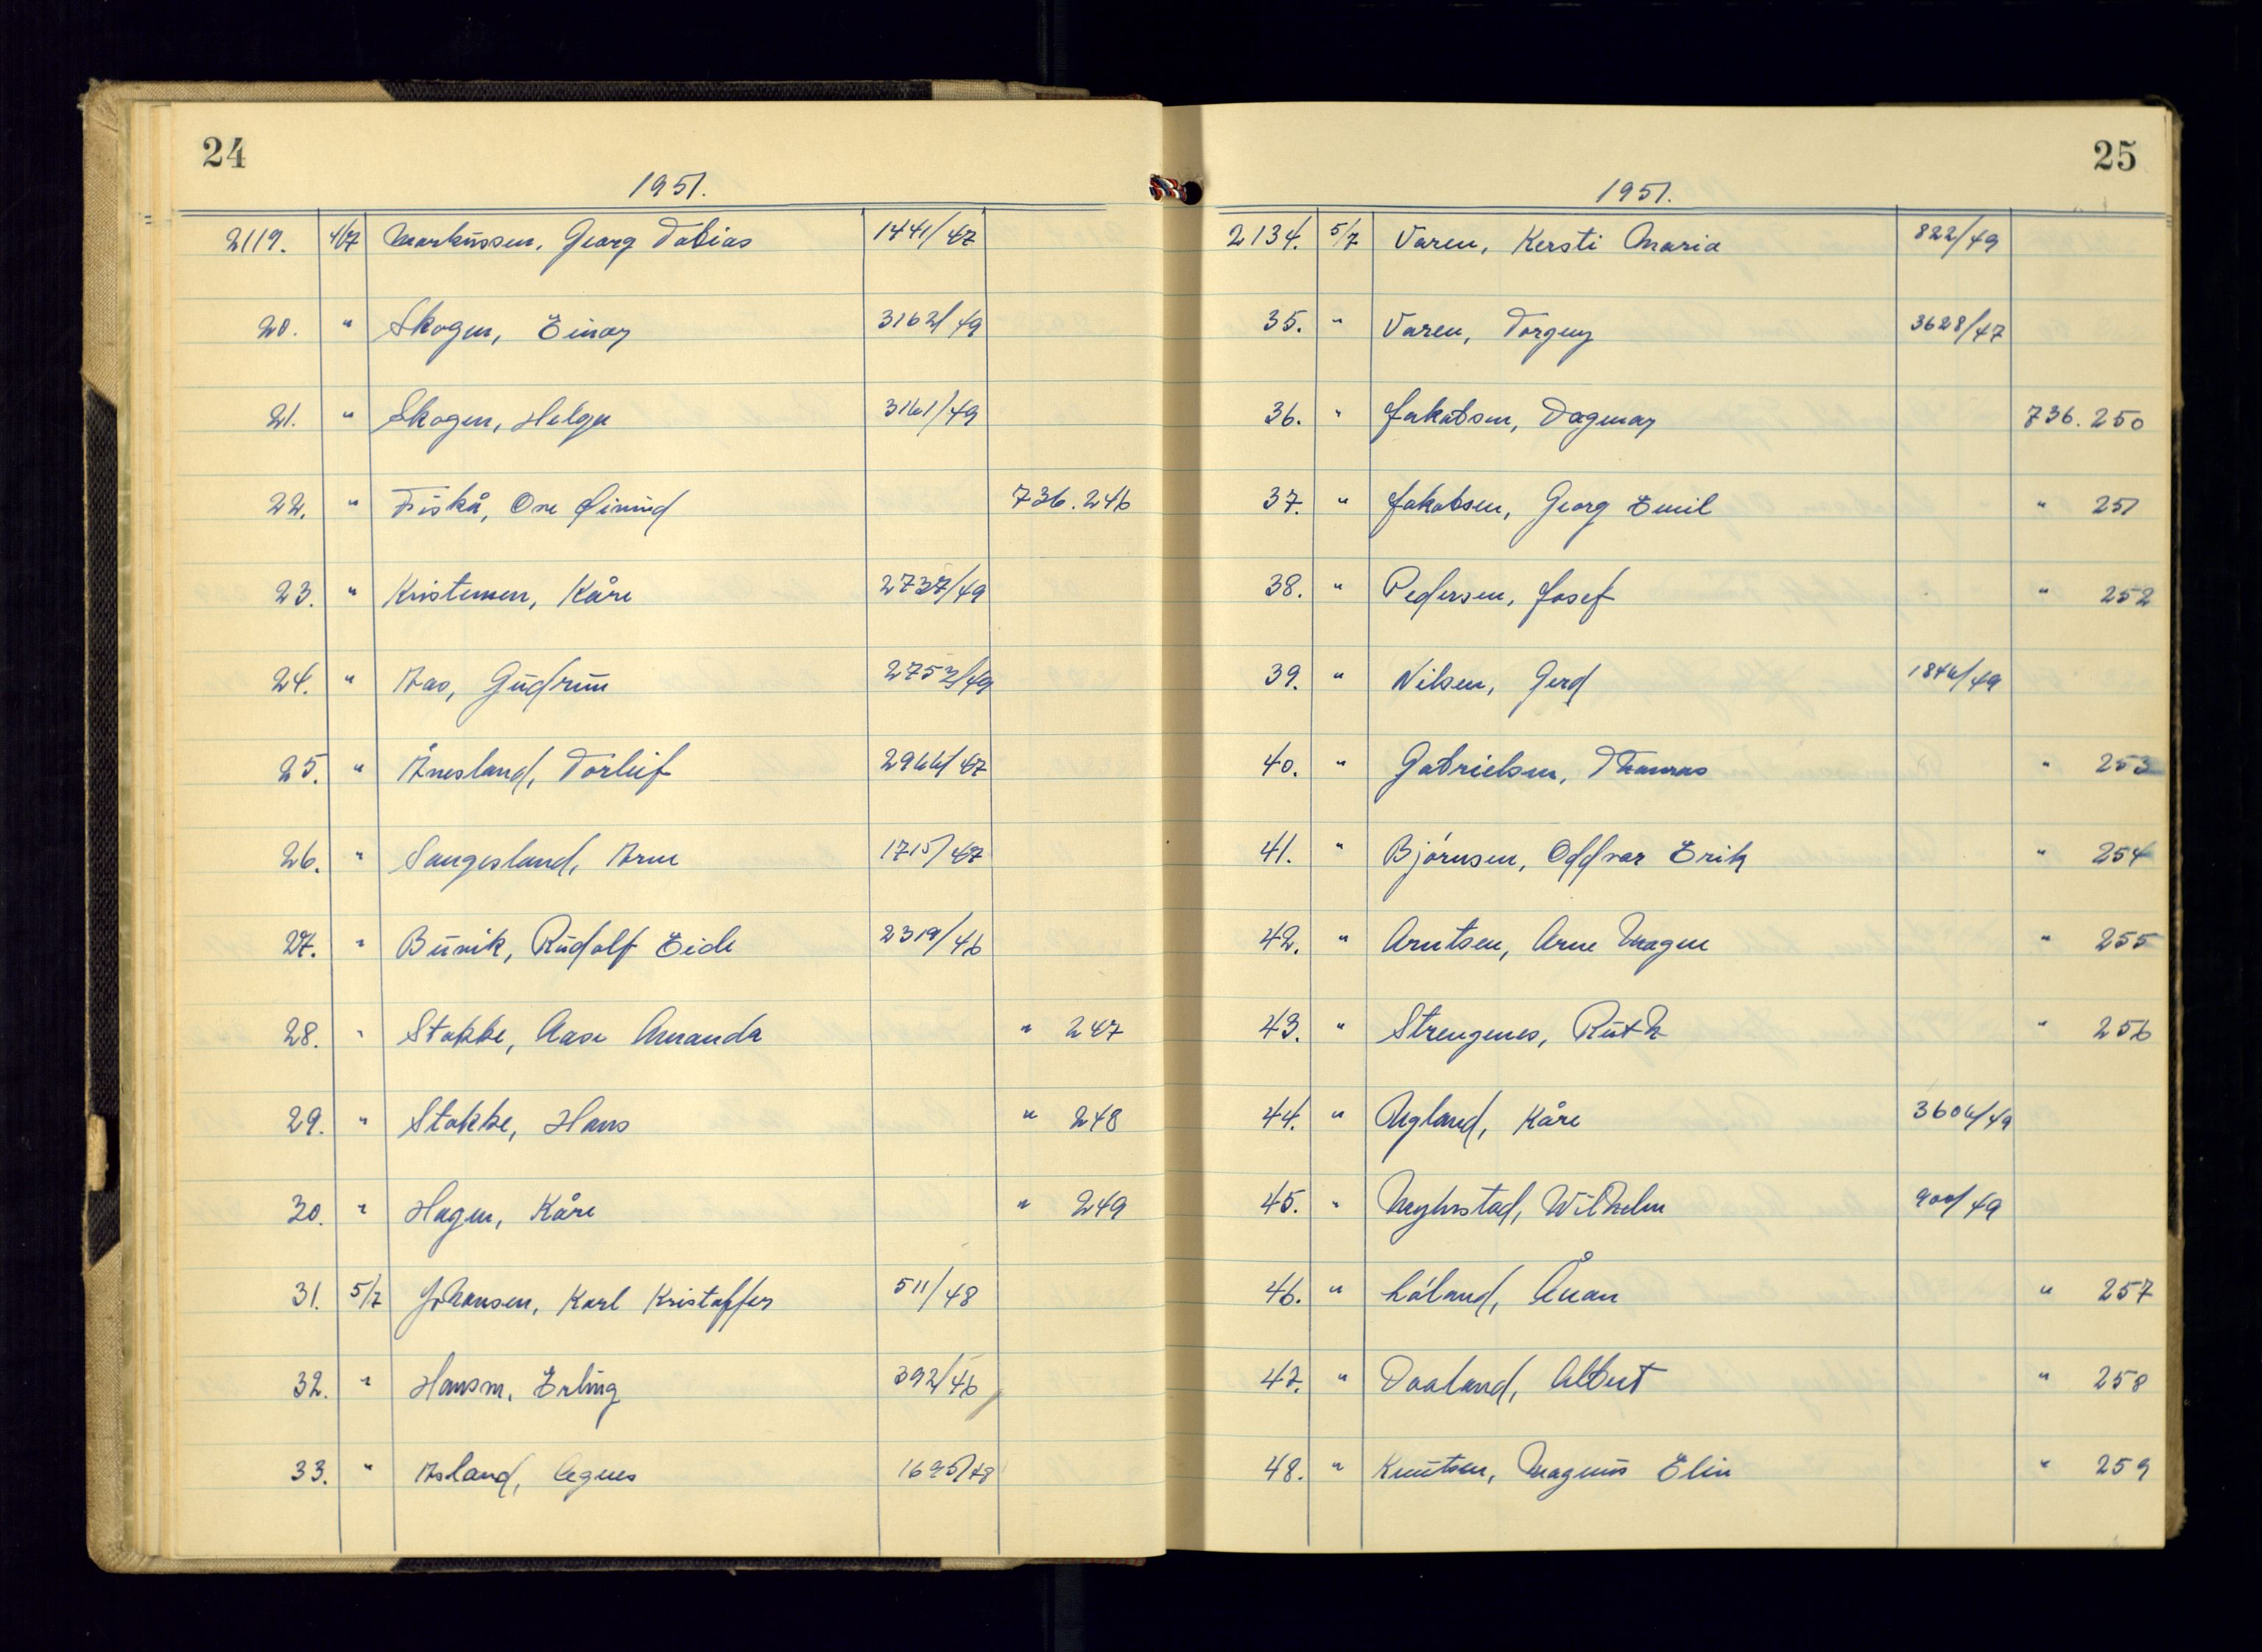 24
1951.
2119. 4/7 Markussen, Georg Tobias 1441/47
20. " Skogen, Einar 3162/49
21. " Skogen, Helga 3161/49
22. " Fiskå, One Øivind 736.246
23. " Kristensen, Kåre 2737/49
24. " Aas, Gudrun 2752/49
25. " Ånesland, Torleif 2966/47
26. " Saugesland, Arne 1715/47
27. " Bunik, Rudolf Eide 2319/46
28. " Stokke, Aase Amanda " 247
29. " Stokke, Hans " 248
30. " Hagen, Kåre " 249
31. 5/7 Johansen, Karl Kristoffer 511/48
32. " Hansen, Erling 392/46
33. " Asland, Agnes 1695/48
25
1951.
2134. 5/7 Varen, Kersti Maria 822/49
35. " Varen, Torguny 3628/47
36. " Jakobsen, Dagmar 736.250
37. " Jakobsen, Georg Emil " 251
38. " Pedersen, Josef " 252
39. " Nilsen, Gerd 1846/49
40. " Gabrielsen, Thomas " 253
41. " Bjørnsen, Oddvar Erik " 254
42. " Arntsen, Arne Magne " 255
43. " Strengenes, Ruth " 256
44. " Ugland, Kåre 3606/49
45. " Myhrstad, Wilhelm 900/49
46. " Løland, Ånan " 257
47. " Daaland, Albert " 258
48. " Knutsen, Magnus Elin " 259